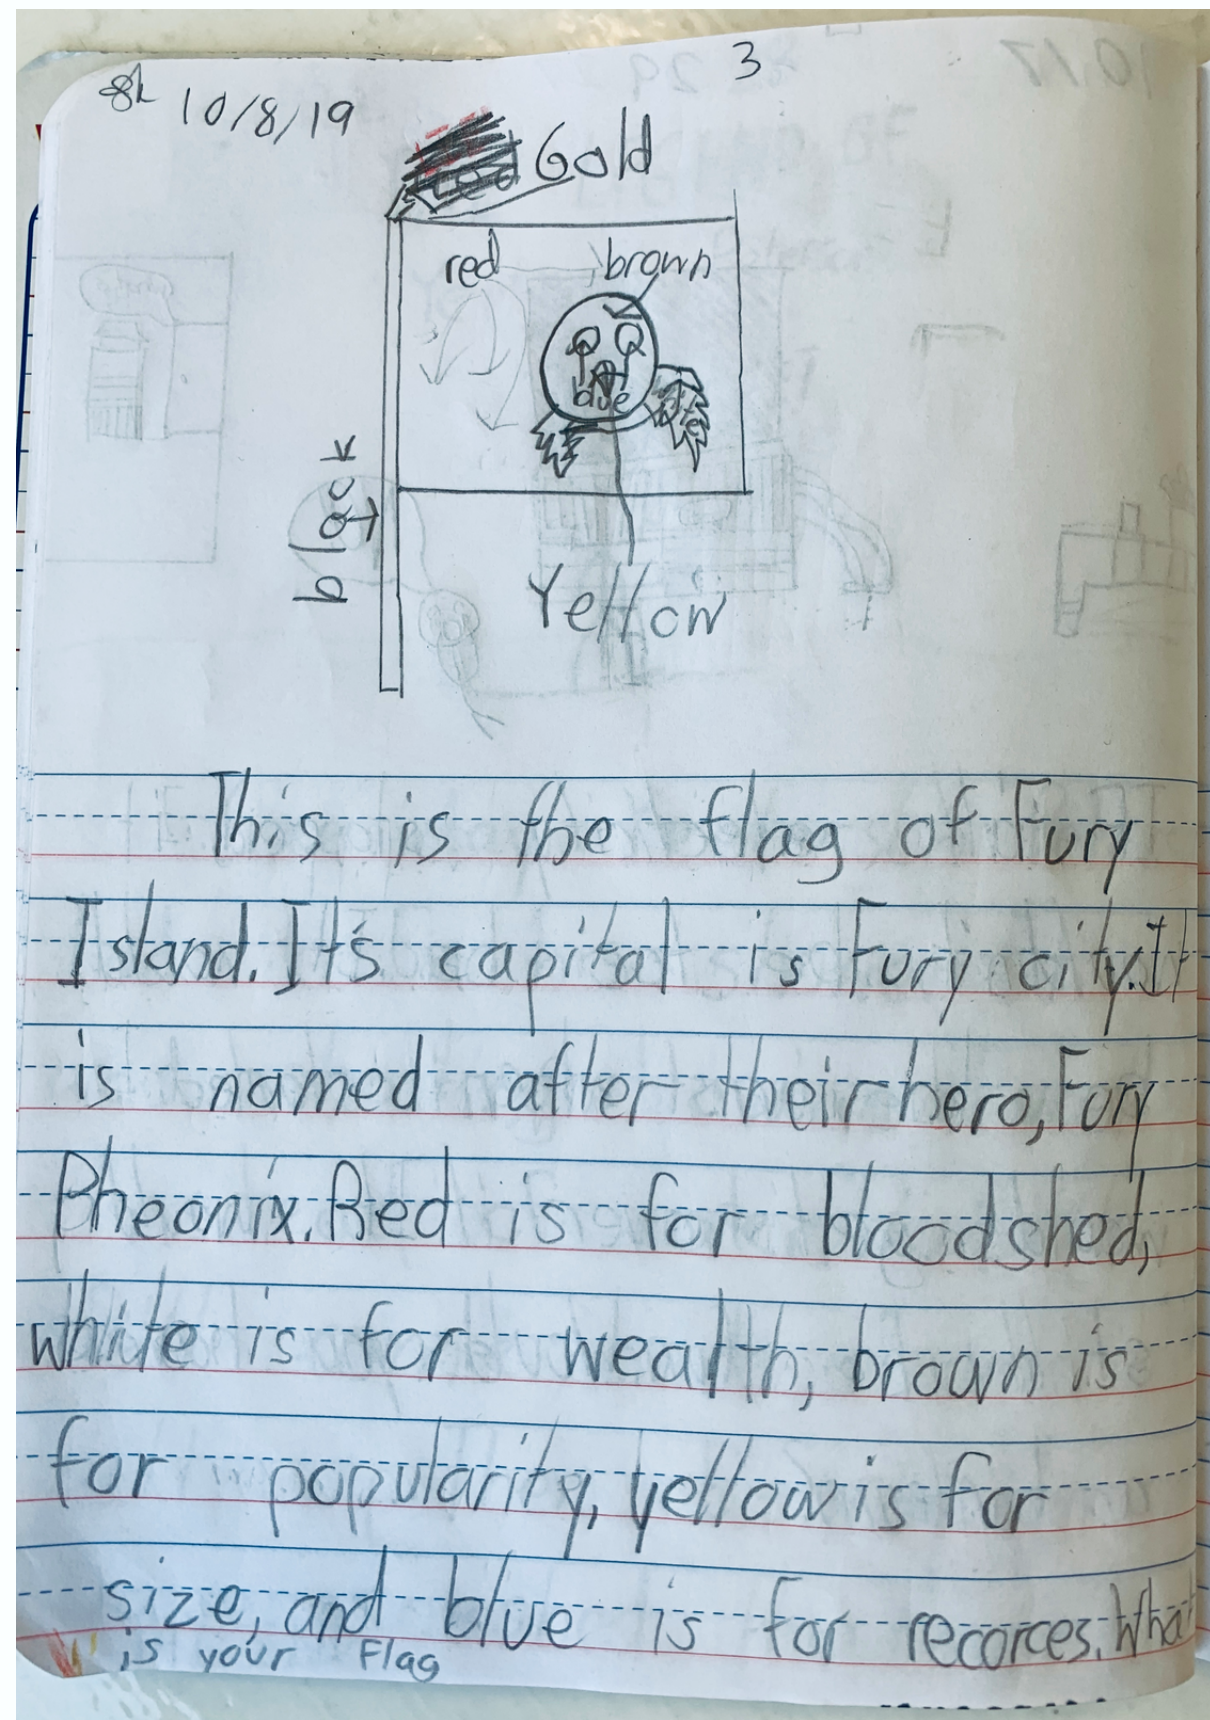 3
10/8/19
Gold
red brown
blue
black
Yellow
This is the flag of Fury
Island. It's capital is Fury city. It
is named after their hero, Fury
Pheonix. Red is for bloodshed,
white is for wealth, brown is
for popularity, yellow is for
size, and blue is for recorces. What
is your Flag